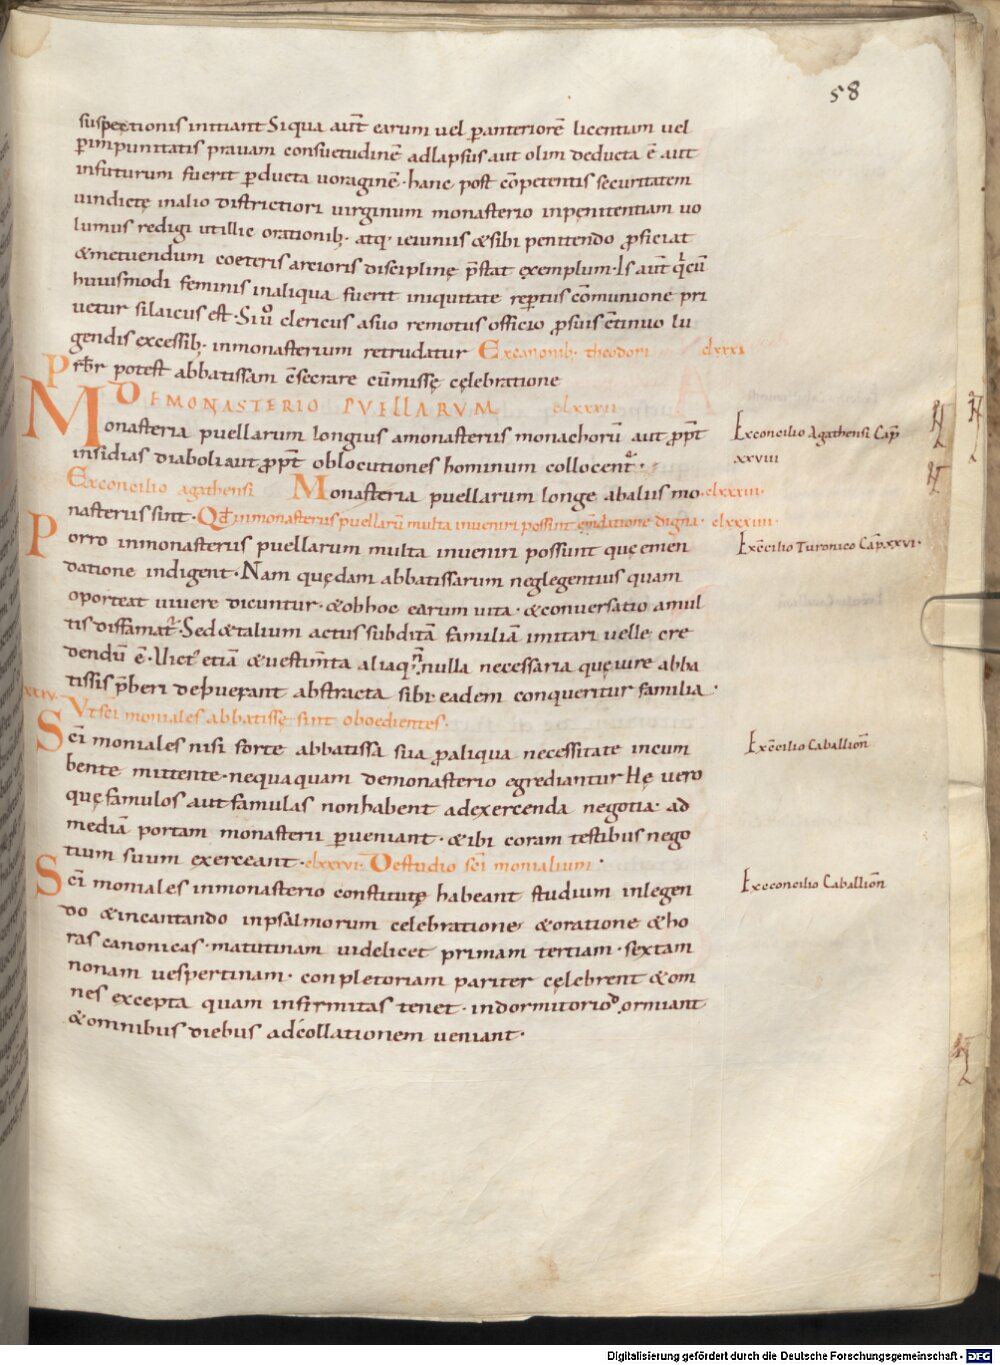 58
suspectionis initiant Siqua aut̄ earum uel p̄anteriorē licentiam uel
p̄impunitatis prauam consuetudinē adlapsus aut olim deducta ē aut
infuturum fuerit p̄ducta uoraginē · hanc post cōpetentis securitatem
uindictę inalio districtiori uirginum monasterio inpęnitentiam uo
lumus redigi utillic orationib; · atq; ieiuniis &sibi penitendo p̄ficiat
&metuendum coeteris arcioris disciplinę p̄stat exemplum · Is aut̄ q̄ cū
huiusmodi feminis inaliqua fuerit iniquitate rep̄tus cōmunione pri
uetur silaicus est · Siū clericus asuo remotus officio p̄suis c̄tinuo lu
gendis excessib; · inmonasterium retrudatur Excanonib; theodori clxxxi
Prb̄r potest abbatissam c̄secrare cūmissę cęlebratione
DEMONASTERIO PVELLARVM clxxxii
Monasteria puellarum longius amonasteriis monachorū aut p̄pt̄
insidias diaboli aut p̄pt̄ oblocutiones hominum collocent᷑ ·
Exconcilio Agathensi Cap̄
xxviii
Exconcilio agathensi Monasteria puellarum longe abaliis mo clxxxiii ·
nasteriis sint · Qd̄ inmonasteriis puellarū multa inueniri possint em̄datione digna · clxxxiiii ·
Porro inmonasteriis puellarum multa inueniri possunt quę emen
Exc̄cilio Turonico Cap̄ xxvi ·
datione indigent · Nam quędam abbatissarum neglegentius quam
oporteat uiuere dicuntur · &obhoc earum uita · &conuersatio amul
tis diffamat᷑ · Sed &talium actus subditā familiā imitari uelle cre
dendū ē · Uict᷑ etiā &uestim̄ta aliaq; nnulla necessaria quę iure abba
tissis p̄beri debuerant abstracta sibi eadem conqueritur familia ·
xxiv Vtsci moniales abbatissę sint oboedientes ·
Sc̄i moniales nisi forte abbatissa sua p̄aliqua necessitate incum
Exc̄cilio Caballion̄
bente mittente · nequaquam demonasterio egrediantur Hę uero
quę famulos aut famulas nonhabent adexercenda negotia · ad
mediā portam monasterii p̄ueniant · &ibi coram testibus nego
tium suum exerceant · clxxxvi · Destudio sc̄i monialium ·
Sc̄i moniales inmonasterio constitutę habeant studium inlegen
Exconcilio Caballion̄
do &incantando inpsalmorum celebratione &oratione &ho
ras canonicas · matutinam uidelicet primam tertiam · sextam
nonam uespertinam · conpletoriam pariter cęlebrent &om
nes excepta quam infirmitas tenet · indormitorio dormiant
&omnibus diebus adcollationem ueniant ·
Digitalisierung gefördert durch die Deutsche Forschungsgemeinschaft - DFG